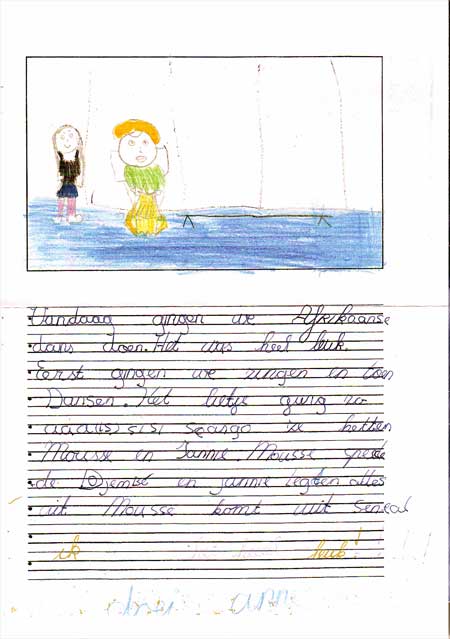 Vandaag gingen we Afrikaanse
dans doen. Het was heel leuk.
Eerst gingen we zingen en toen
Dansen. Het lietje ging zo
ze hetten
Mousse en Jannie. Mousse speelde
de Djembé en jannie legten alles
uit Mousse komt uit senecal
ik leuk!